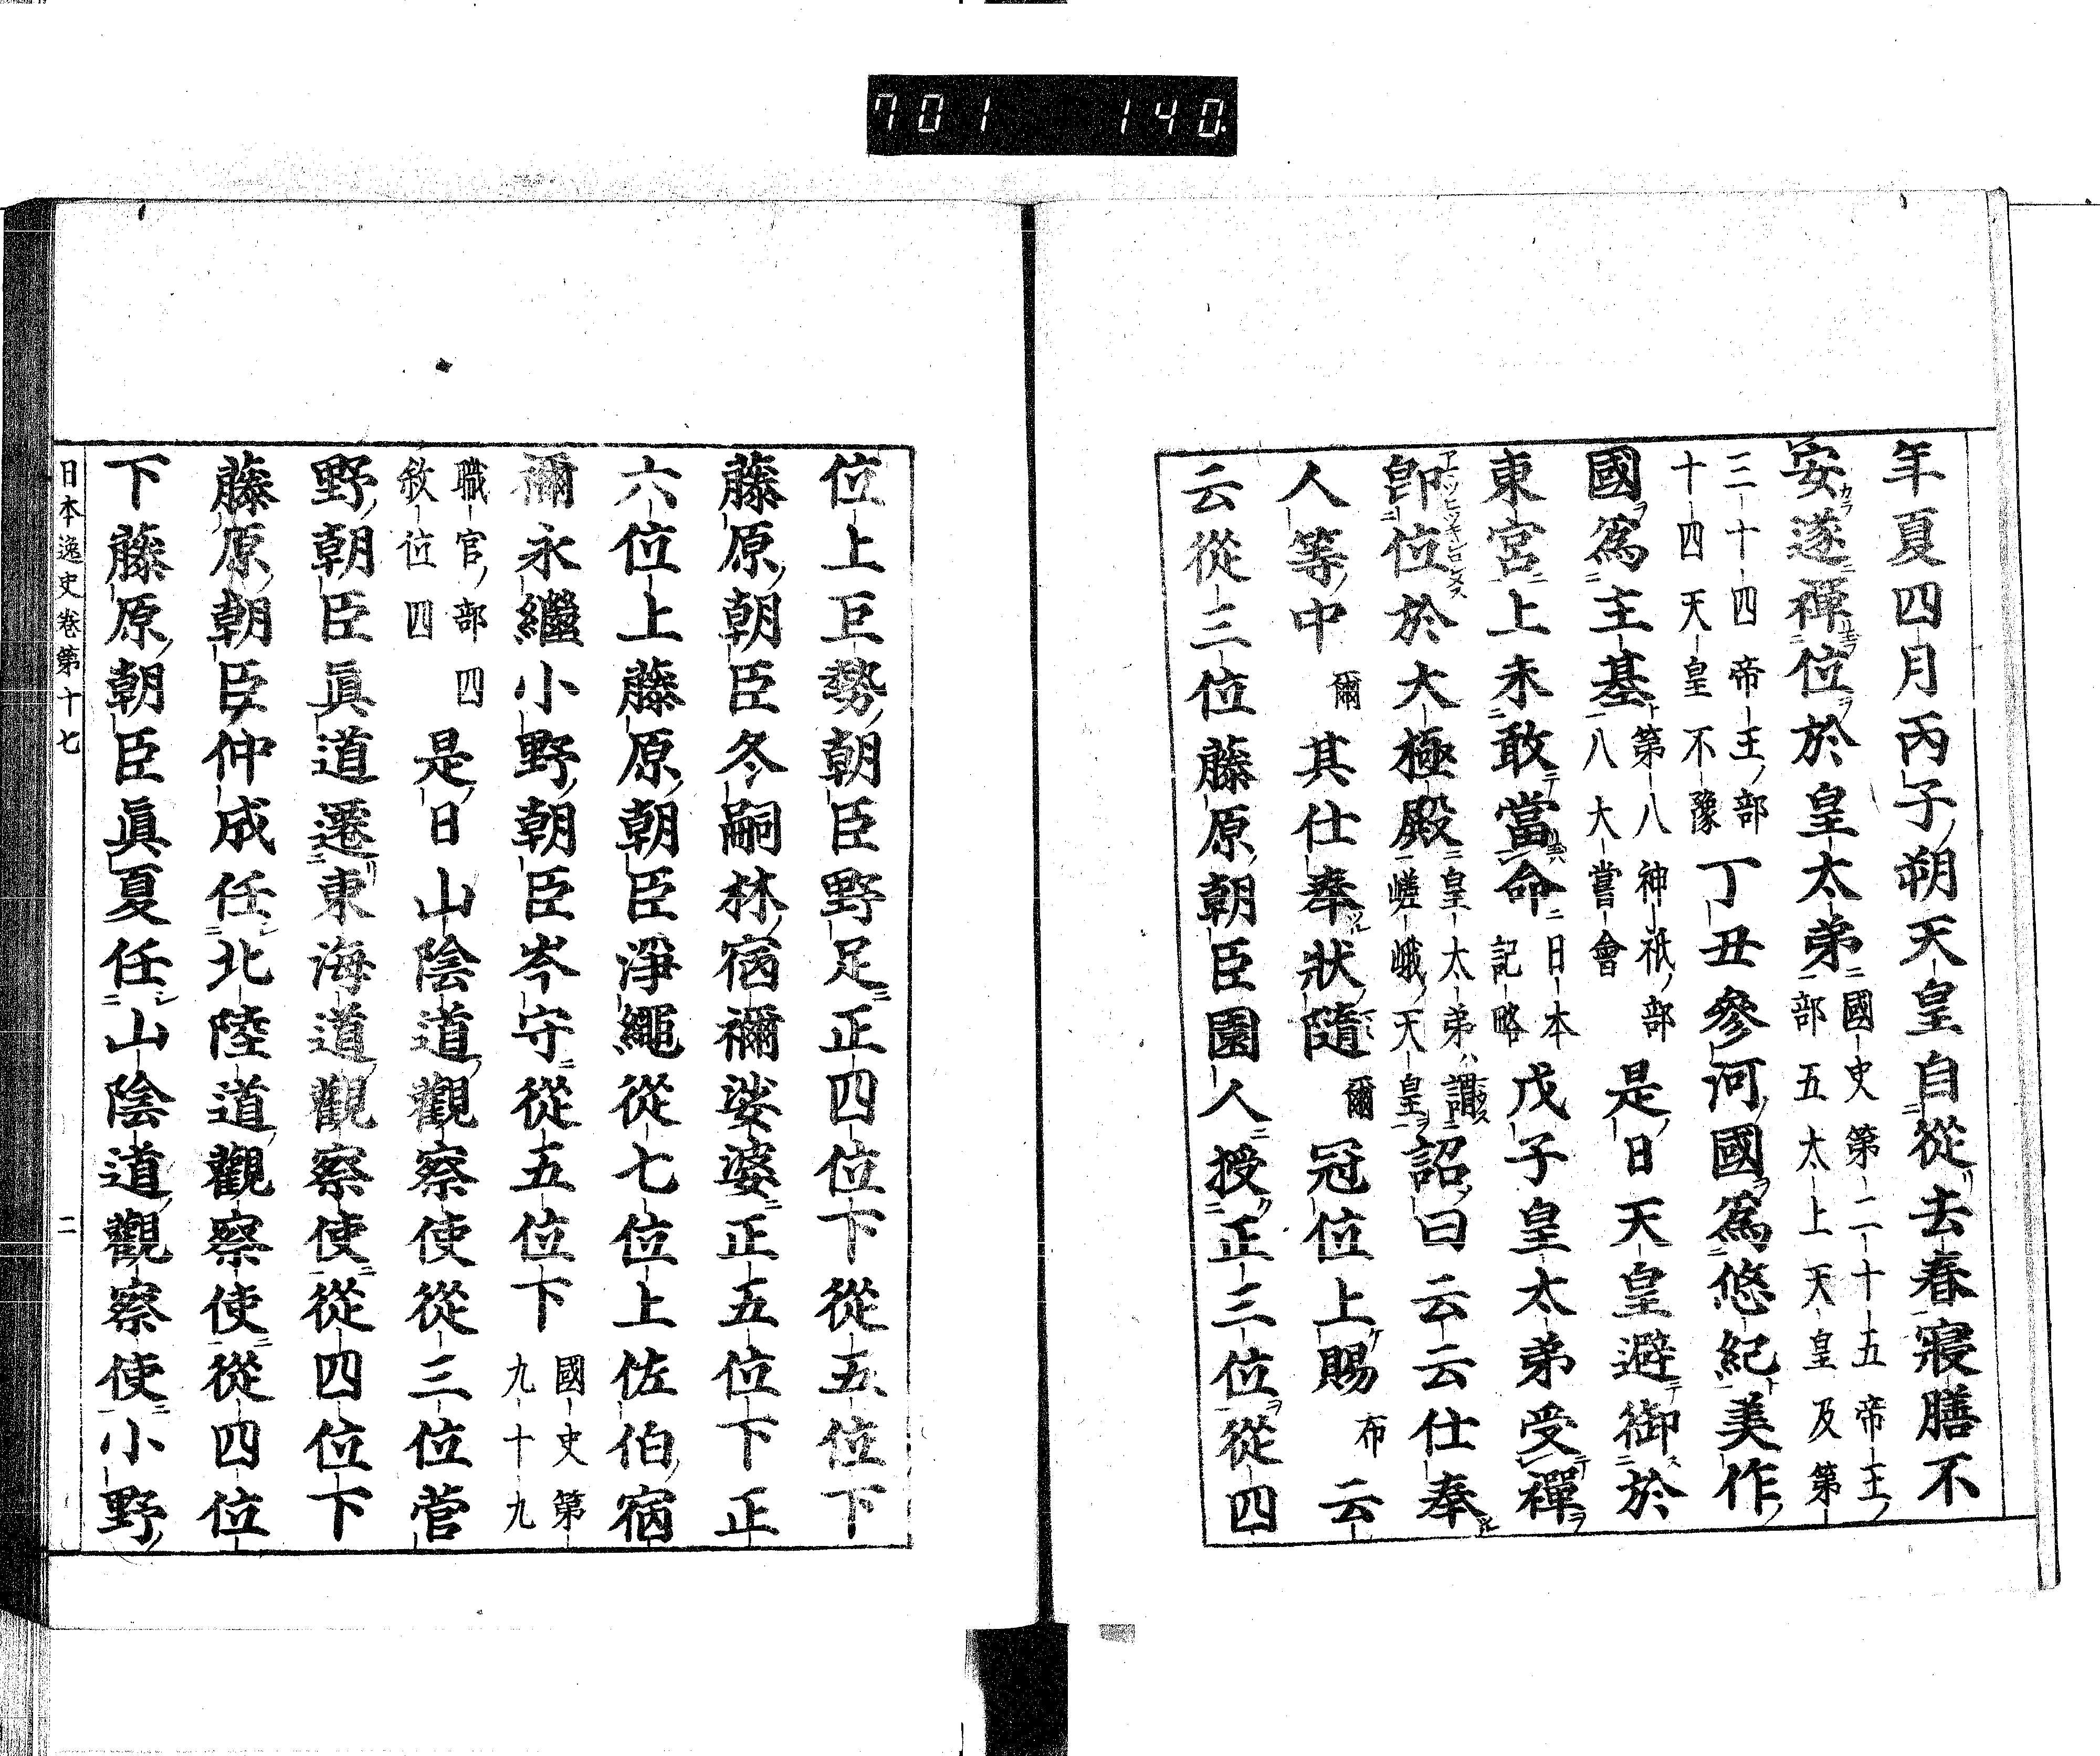 701 140
年夏四月丙子朔天皇自從去春寢膳不
安遂禪位於皇太弟國史第二十五帝王部五太上天皇及第
三十四帝王部十四天皇不豫丁丑參河國爲悠紀美作
國爲主基第八神祇部八大嘗會是日天皇避御於
東宮上未敢當命日本記略戊子皇太弟受禪
卽位於大極殿皇太弟ハ謂嵯峨天皇詔曰云云仕奉
人等中爾其仕奉狀隨爾冠位上賜布云
云從三位藤原朝臣園人授正三位從四
位上巨勢朝臣野足正四位下從五位下
藤原朝臣冬嗣林宿禰娑婆正五位下正
六位上藤原朝臣淨繩從七位上佐伯宿
禰永繼小野朝臣岑守從五位下國史第九十九
職官部四敘位四是日山陰道觀察使從三位菅
野朝臣眞道遷東海道觀察使從四位下
藤原朝臣仲成任北陸道觀察使從四位
下藤原朝臣眞夏任山陰道觀察使小野
日本逸史卷第十七 二